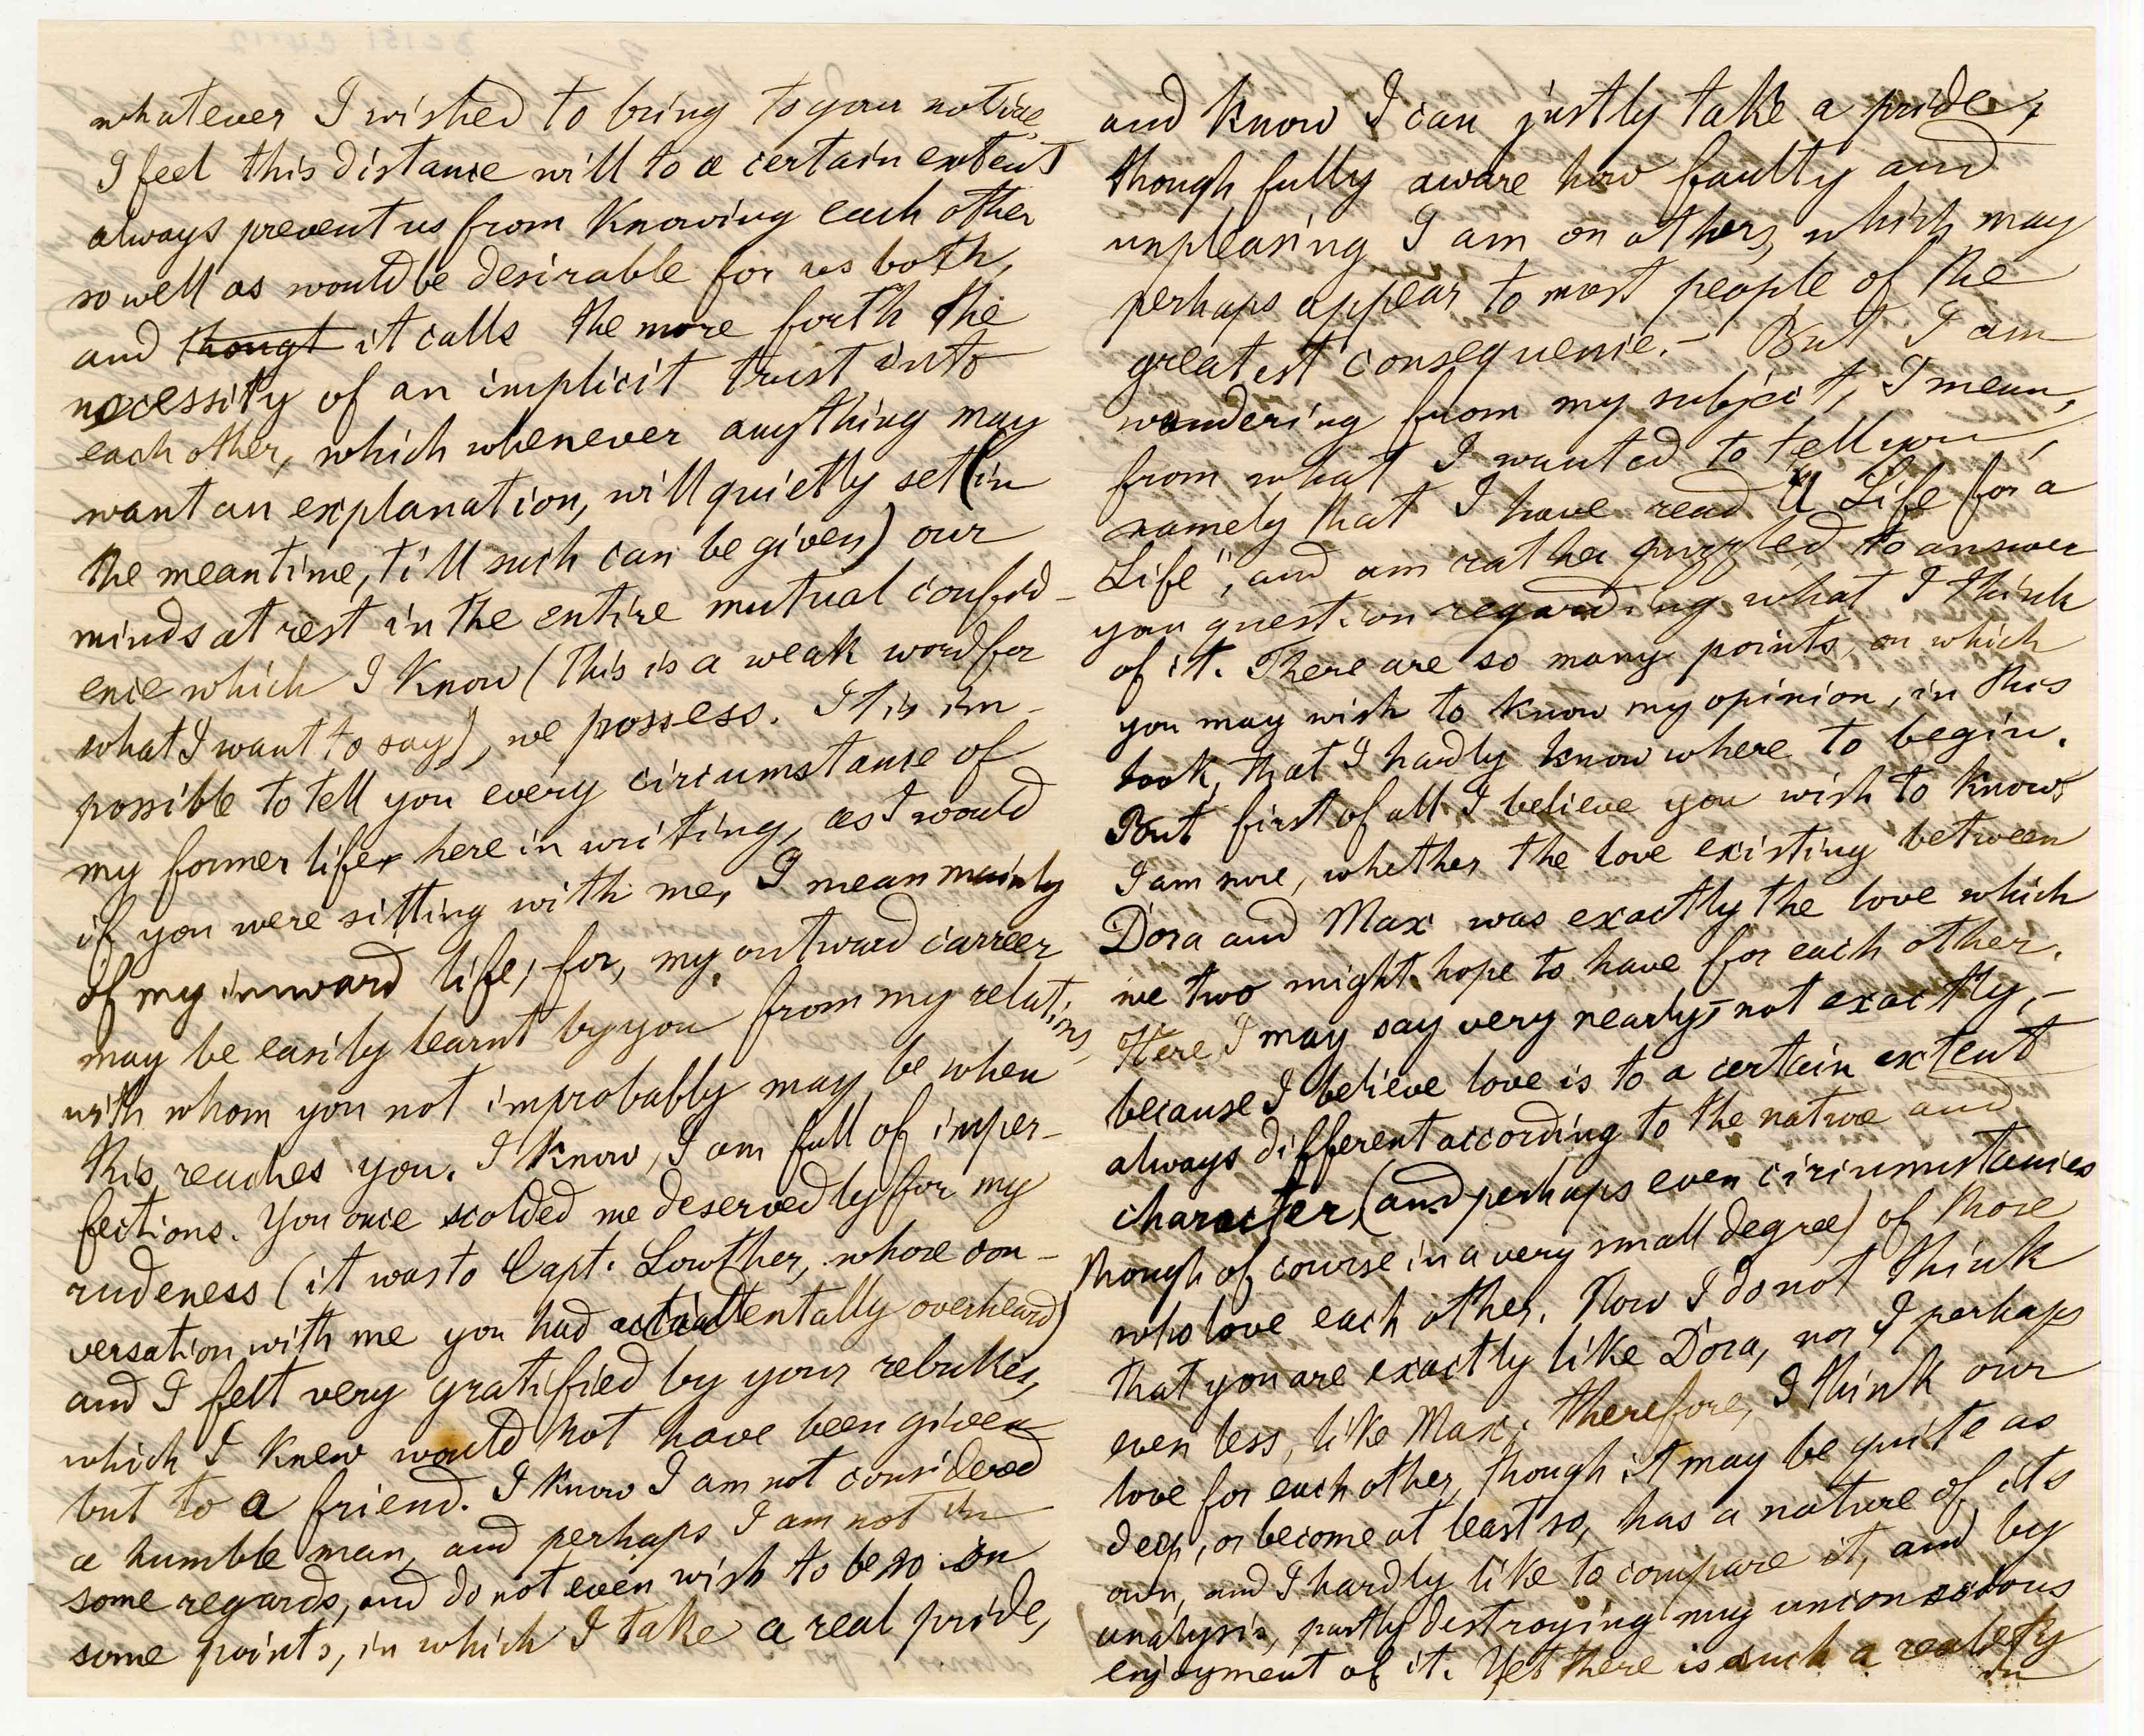 whatever I wished to bring to your notice,
I feel this distance will to a certain extent
always prevent us from knowing each other
so well as would be desirable for us both,
and thougt it calls the more forth the
necessity of an implicit trust into
each other, which whenever anything may
want an explanation, will quietly set (in
the meantime, till such can be given) our
minds at rest in the entire mutual confid-
ence which I know (this is a weak word for
what I want to say), we possess. It is im-
possible to tell you every circumstance of
my former life here in writing, as I would
if you were sitting with me, I mean mainly
of my innward life, for, my outward carreer
may be easily learnt by you from my relations,
with whom you not improbably may be when
this reaches you. I know, I am full of imper-
fections. You once scolded me deservedly for my
rudeness (it was to Capt. Lowther, whose con-
versation with me you had accidentally overheard)
and I felt very gratified by your rebukes,
which I knew would not have been given
but to a friend. I know I am not considered
a humble man, and perhaps I am not in
some regards, and do not even wish to be so in
some points, in which I take a real pride,
and know I can justly take a pride,
though fully aware how faulty and
unpleasing I am on others, which may
perhaps appear to most people of the
greatest consequence.- But I am
wandering from my subject, I mean,
from what I wanted to tell you,
namely that I have read "A Life for a
Life", and am rather puzzled to answer
your question regarding what I think
of it. There are so many points, on which
you may wish to know my opinion, in this
book, that I hardly know where to begin.
But first of all I believe you wish to know,
I am sure, whether the love existing between
Dora and Max was exactly the love which
we two might hope to have for each other.
Here I may say very nearly, not exactly,-
because I believe love is to a certain extent
always different according to the nature and
character (and perhaps even circumstances
though of course in a very small degree) of those
who love each other. Now I do not think
that you are exactly like Dora, nor I perhaps
even less, like Max; therefore, I think our
love for each other, though it may be quite as
deep, or become at least so, has a nature of its
own, and I hardly like to compare it, and by
analysis, partly destroying my
enjoyment of it. Yet there is such a reality
in